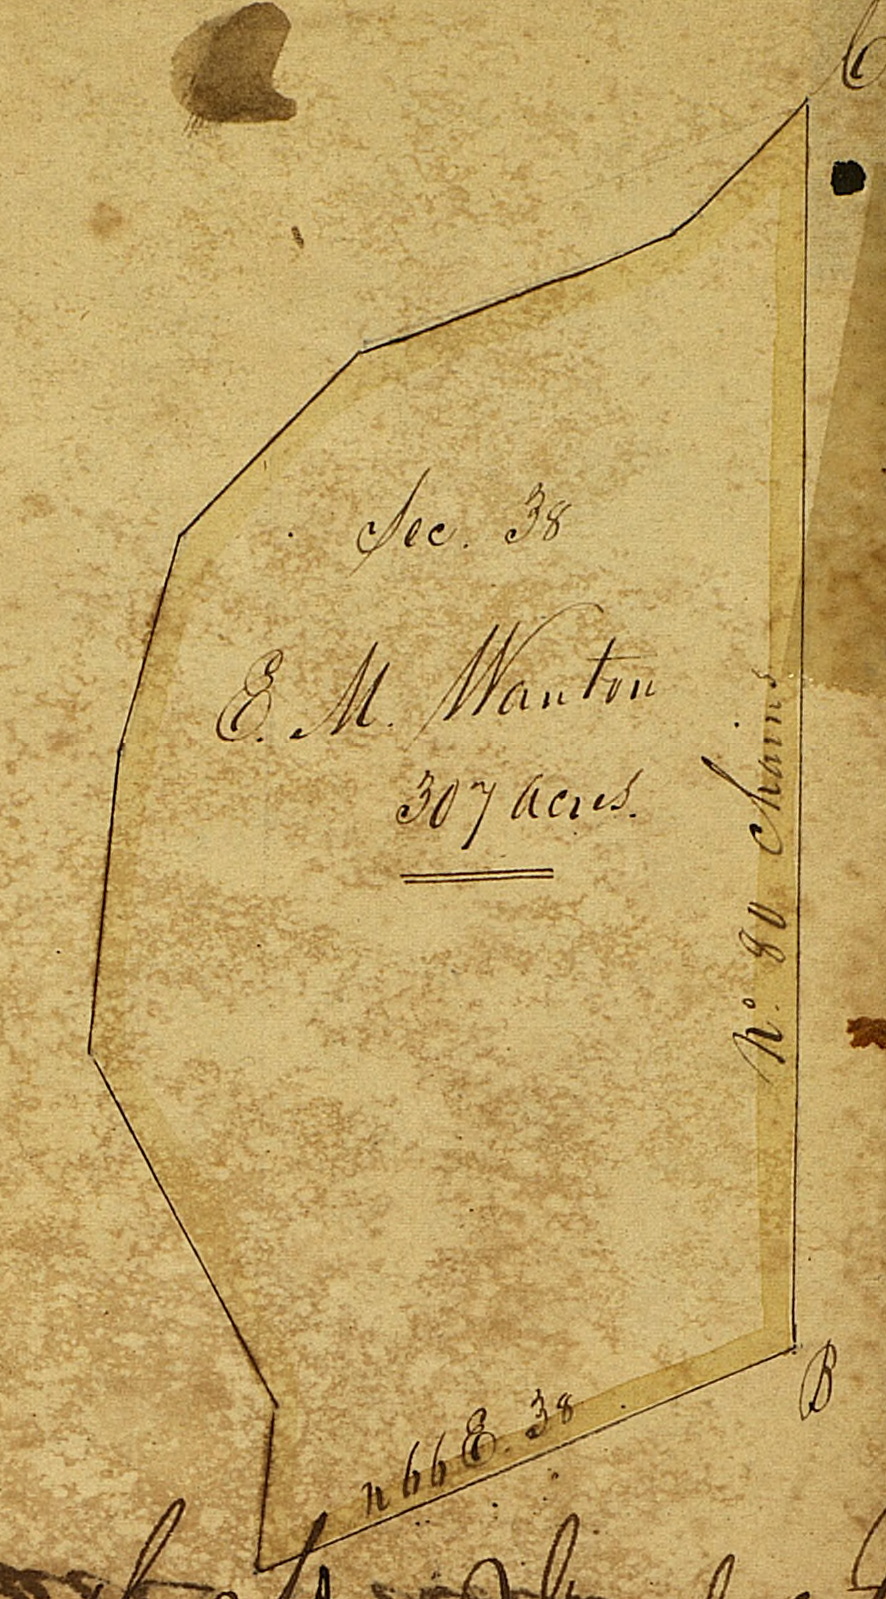 C
Sec. 38
E. M. Wanton
307 acres.
No. 80 chains
B
N 66 E. 38